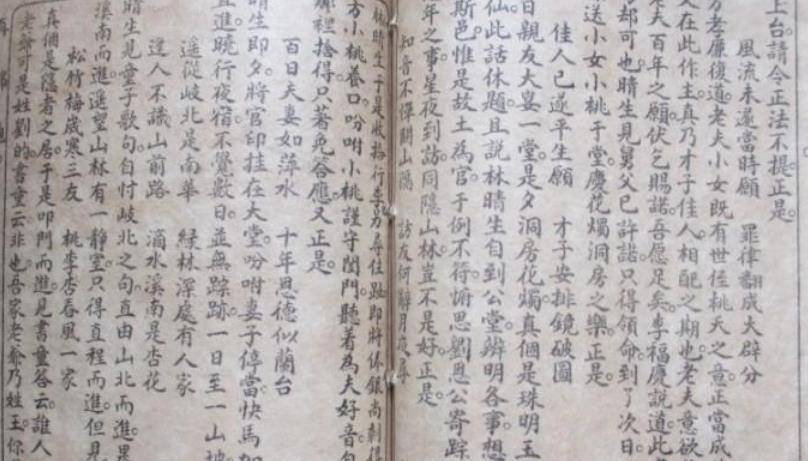 上台。請令正法不提。正是。
風流未遂當時願　罪律翻成大辟分
孝廉復道。老夫小女既有世侄桃夭之意。正當成
人在此作主。真乃才子佳人相配之期也。老夫意欲
夫百年之願。伏乞賜諾。吾愿足矣。李福慶說道。此
却可也。晴生見舅父已許諾。只得領命。到了次日。
送小女小桃于堂。慶花燭洞房之樂。正是。
佳人已遂平生愿　才子安排鏡破圓
日親友大宴一堂。是夕洞房花燭。真個是珠明玉
仙。此話休題。且說林晴生自到公堂。辨明各事。想
斯邑惟是故土。為官于例不符。俯思劉恩公寄踪
年之事。星夜到訪。同隱山林。豈不是好。正是。
知音不憚關山隔　訪友何辭月夜尋
林晴生于是收拾行李
方小桃養口。吩咐小桃謹守閨門。聽著為夫好音
裡捨得。只著免答應。又正是。
百日夫妻如萍水　十年恩德似蘭台
晴生即夕將官印挂在大堂。吩咐妻子停當。快馬加
直進。曉行夜宿。不覺數日。並無踪跡。一日至一山坡
遥從岐北是南華　緑林深處有人家
達人不識山前路　滴水溪南是杏花
晴生見童子歌句。自忖岐北之句。直由山北而進。果
溪南而進。遥望山林有一靜室。只得直程而進。但見
松竹梅歲寒三友　桃李杏春風一家
真個是隱者之居。于是叩門而進。見書童答云。誰人
老爺可是姓劉的。書童云。非也。吾家老爺乃姓王。你